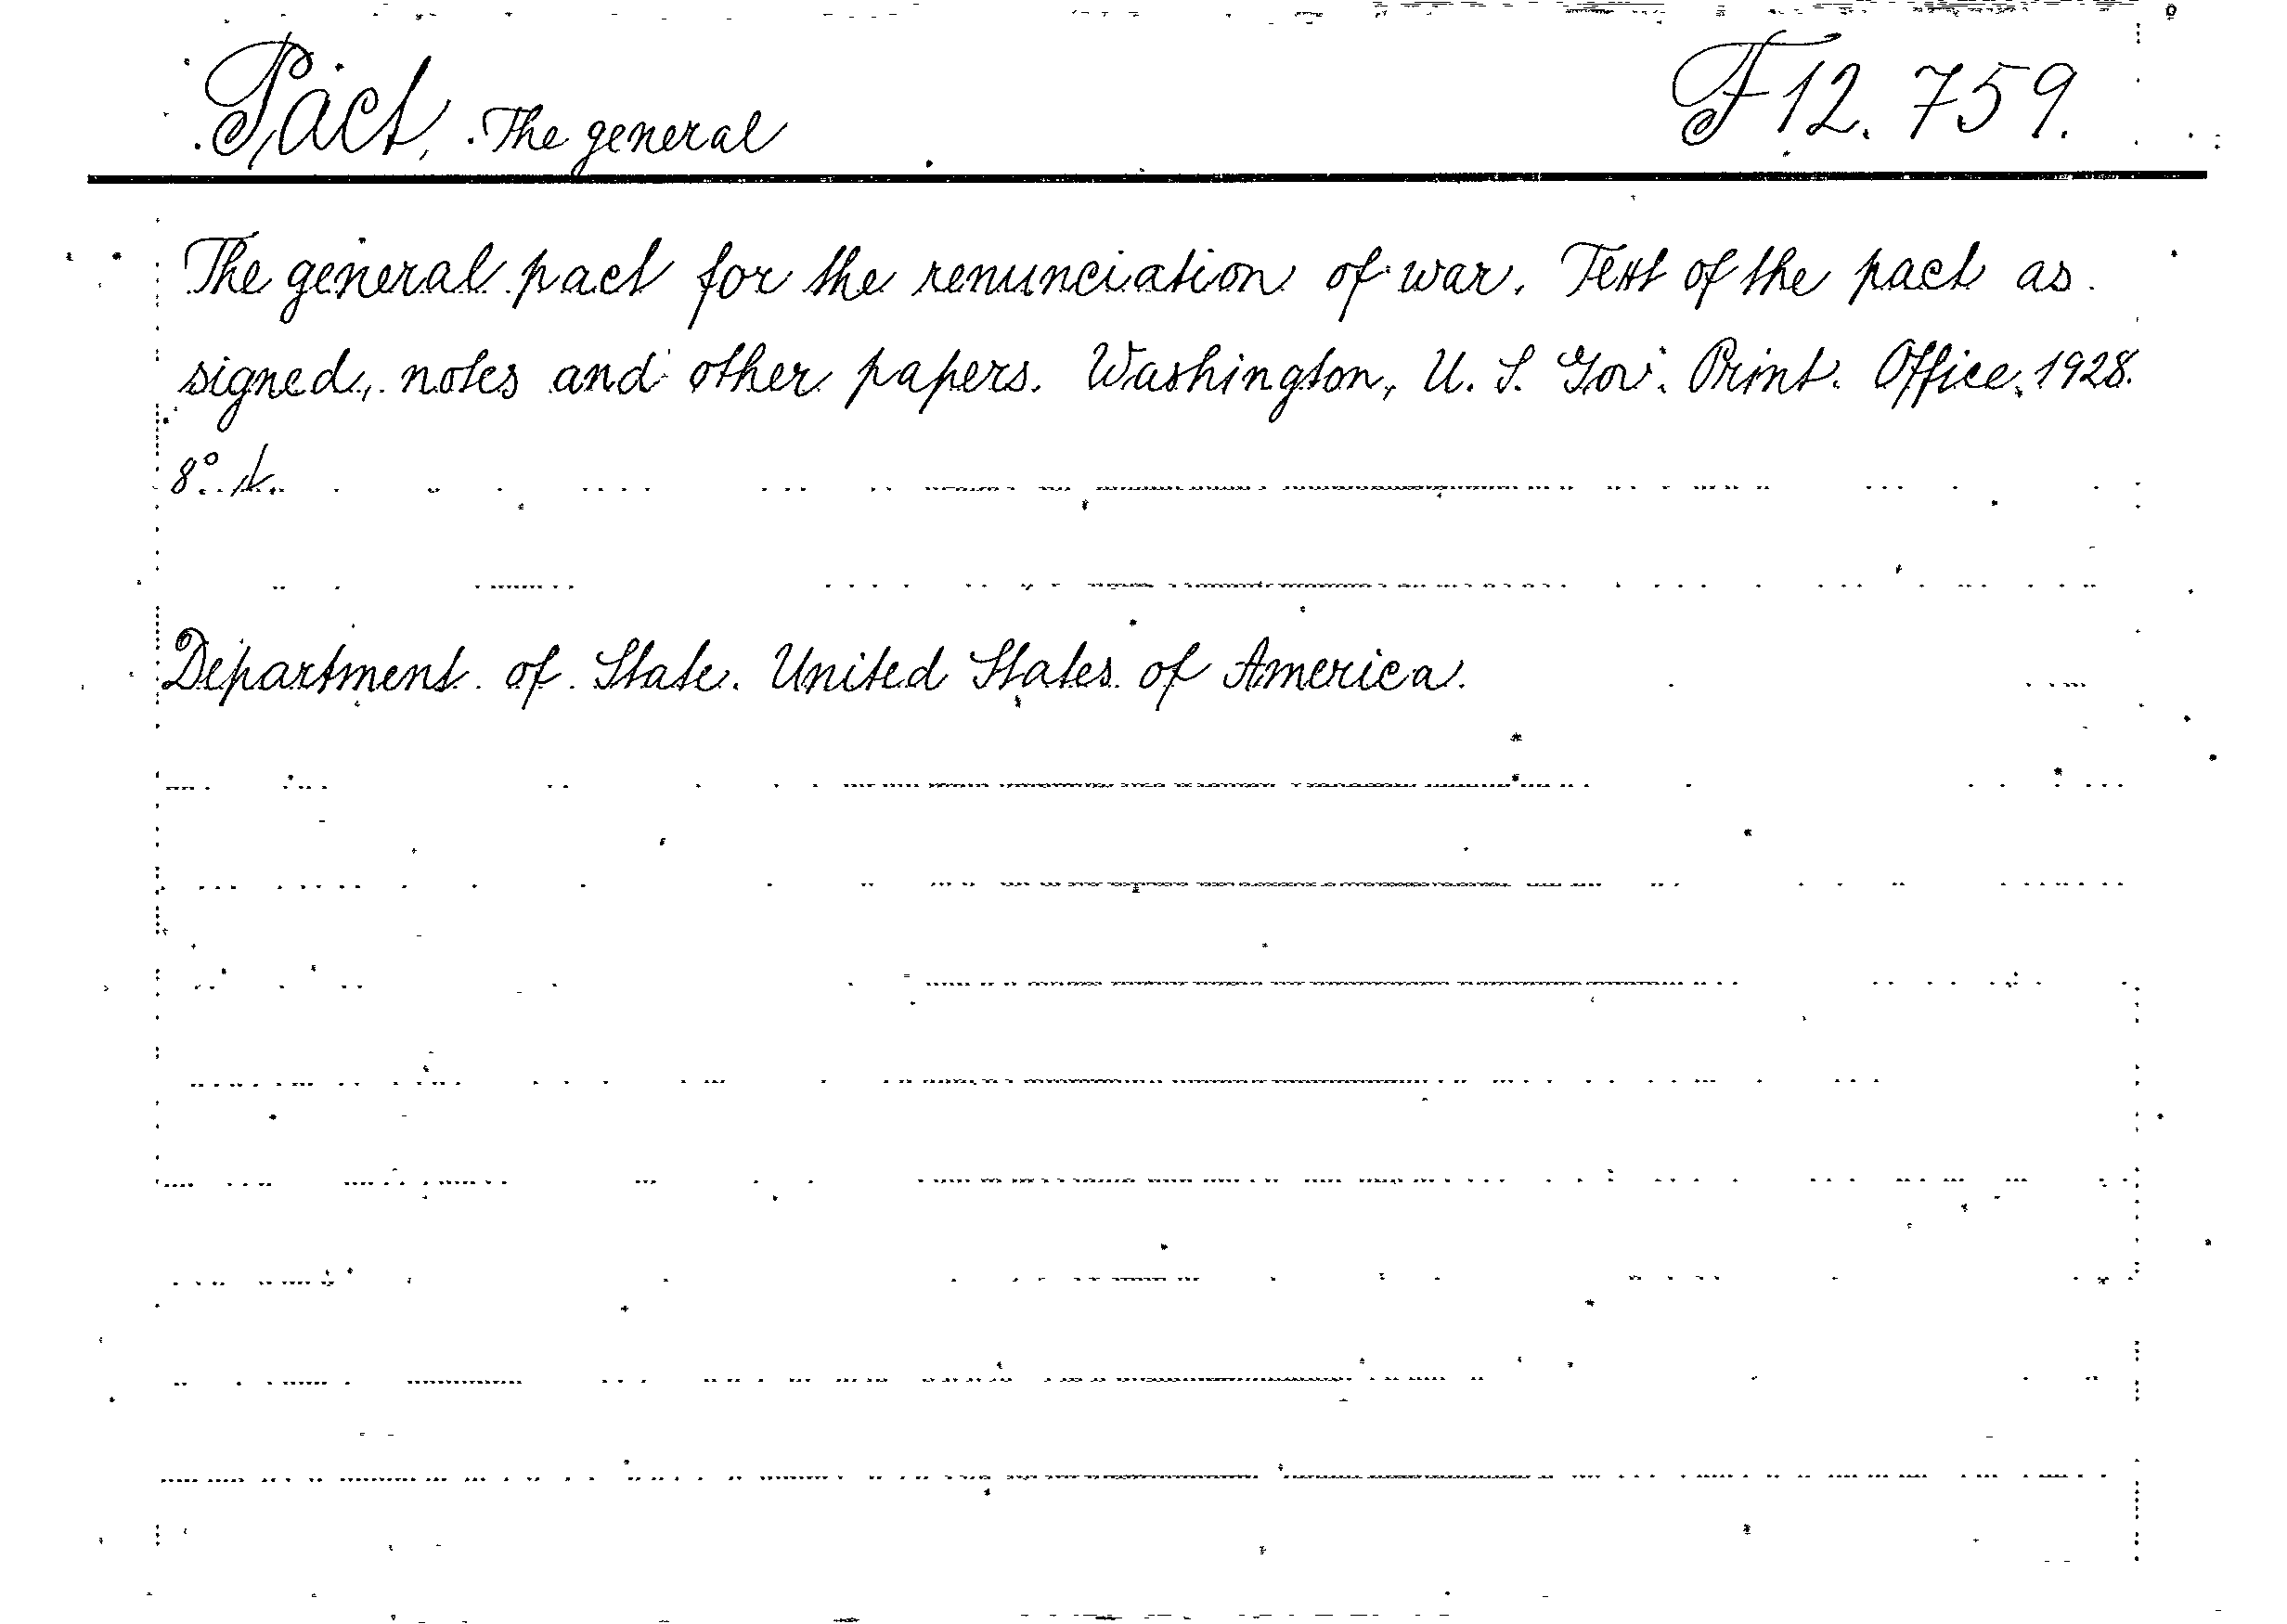 Pact, The general F 12. 759.
The general pact for the renunciation of war. Text of the pact as
signed, notes and other papers. Washington, U. S. Gov. Print. Office, 1928.
8°. k.
Department of State. United States of America.